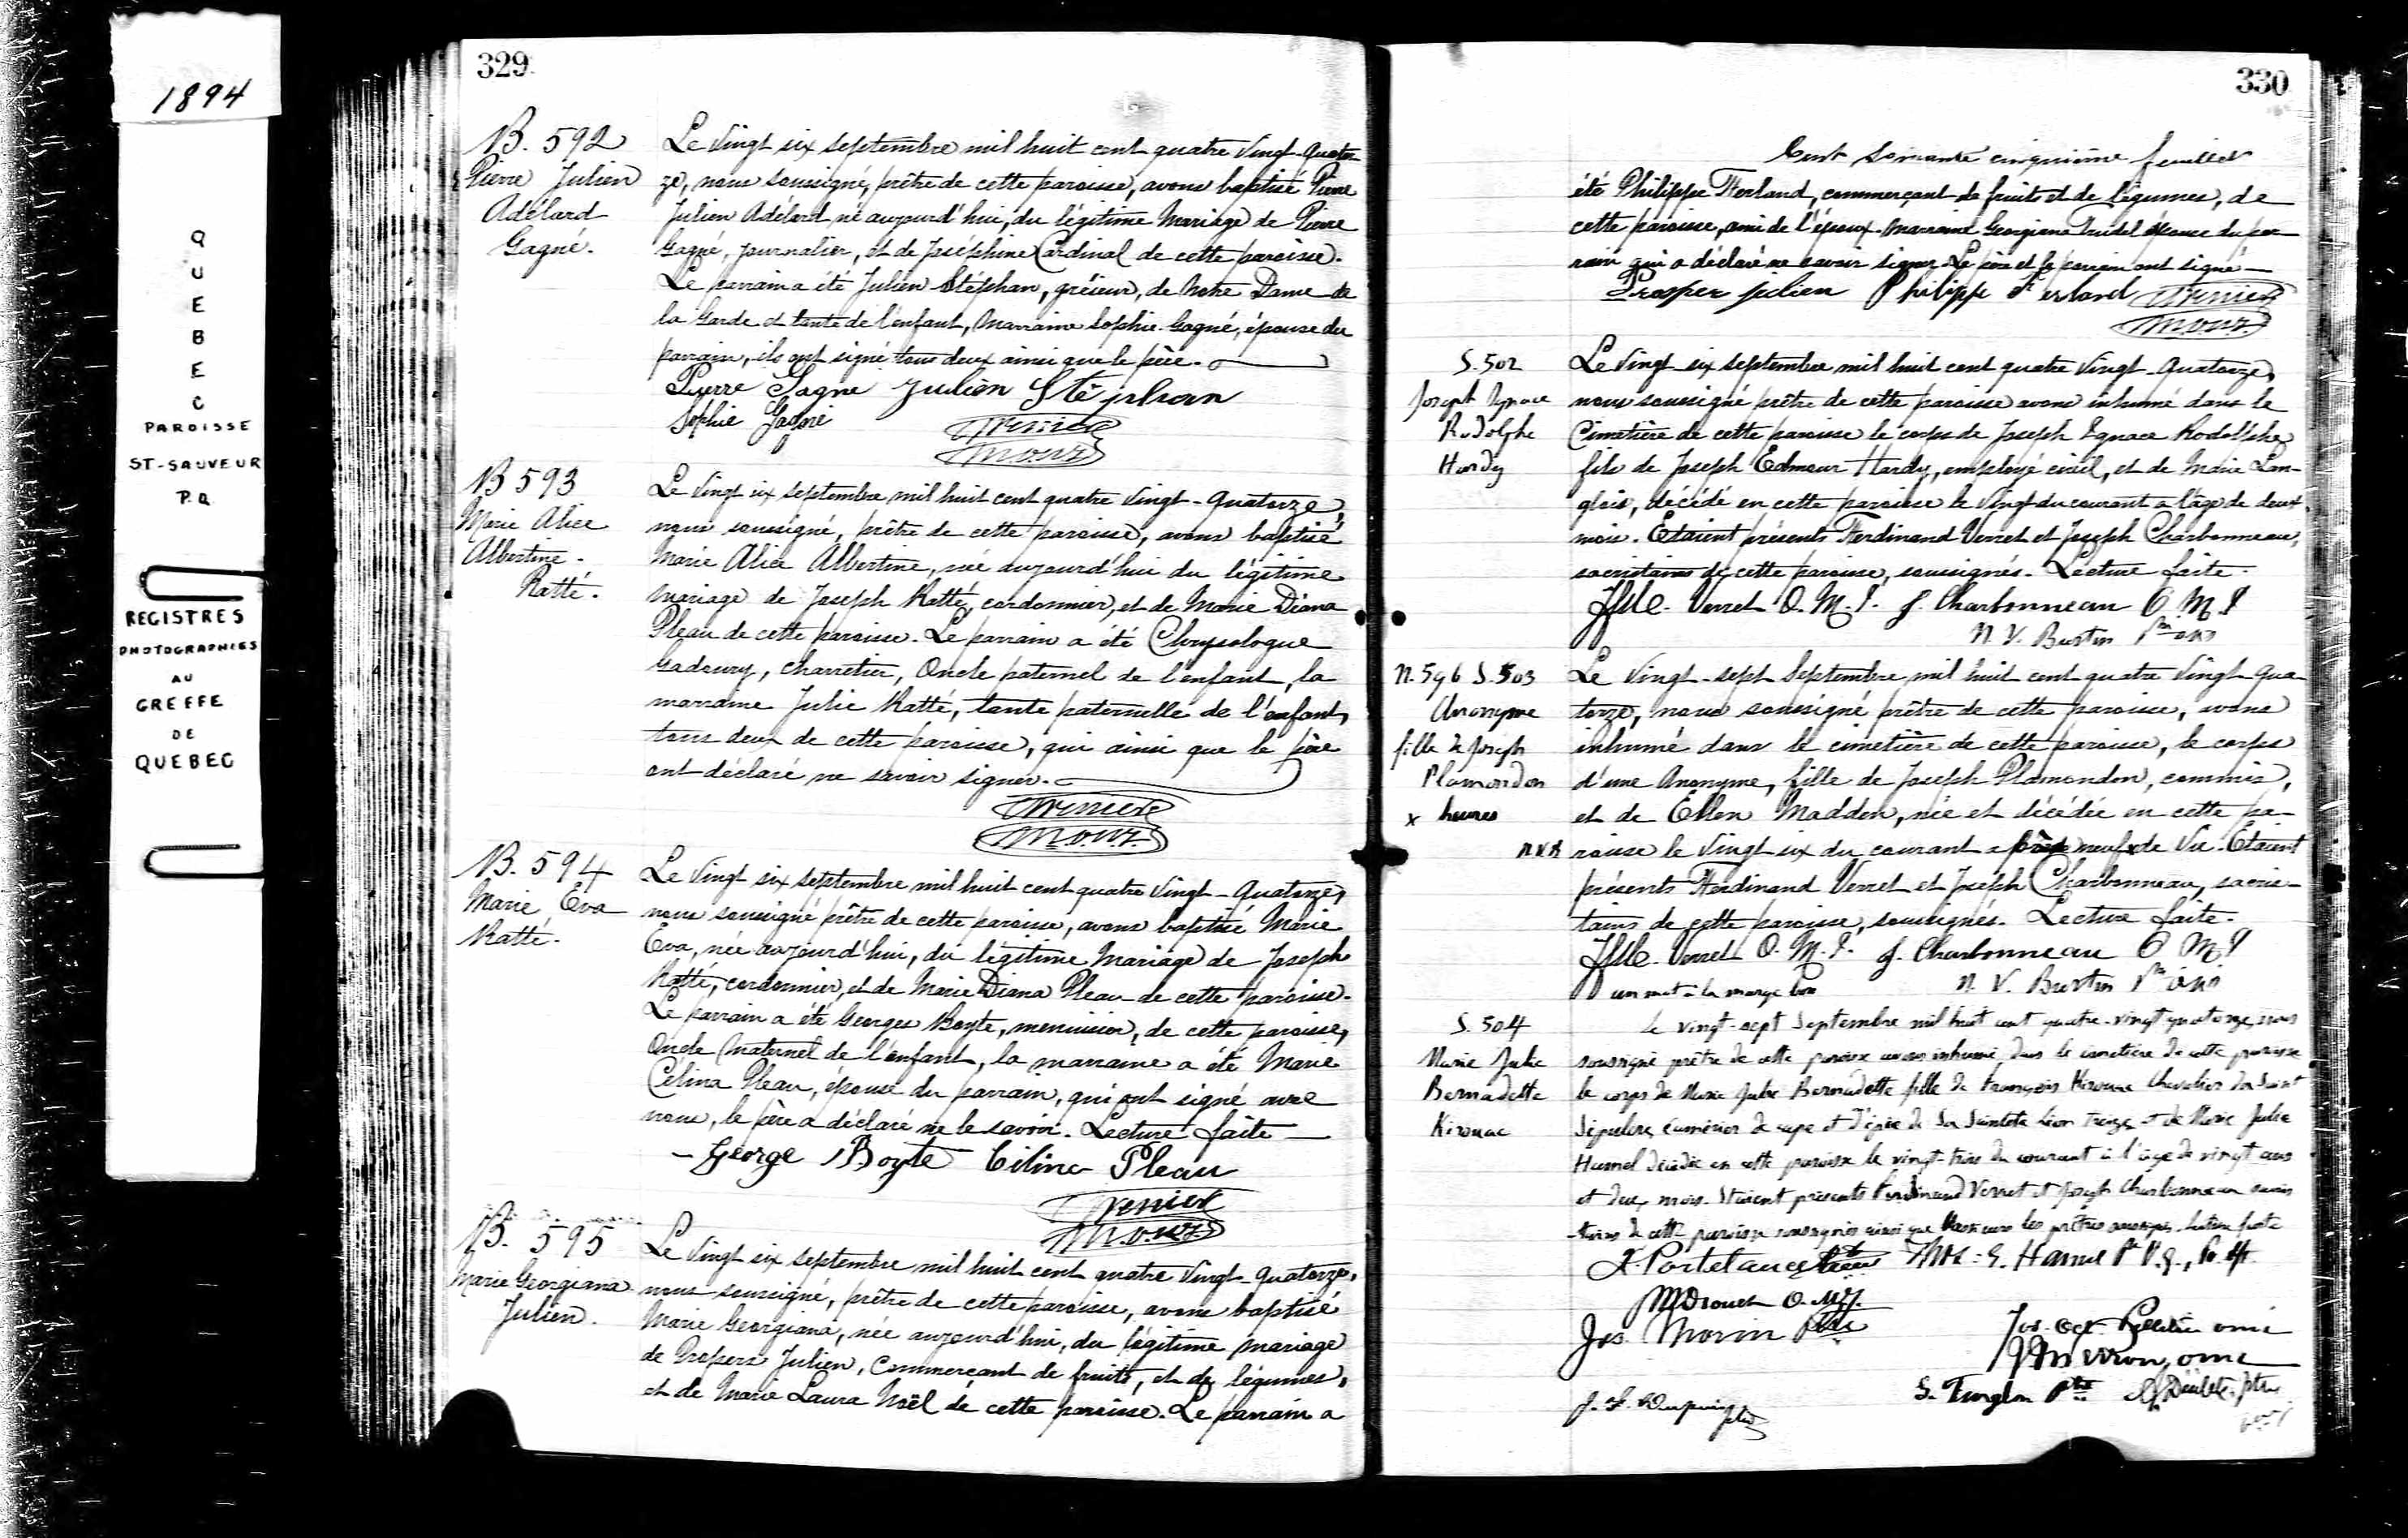 1894
QUEBEC
PAROISSE
ST-SAUVEUR
P.Q
REGISTRES
PHOTOGRAPHIES
AU
GREFFE
DE
QUEBEC
329
B. 592
Pierre Julien
Adélard
Gagné.
Le vingt six septembre mil huit cent quatre vingt-quator-
ze, nous soussigné, prêtre de cette paroisse, avons baptisé Pierre
Julien Adélard né aujourd'hui, du légitime Mariage de Pierre
Gagné, journalier, et de Joséphine Cardinal de cette paroisse.
Le parrain a été Julien Stéphan, gréeur, de Notre Dame de
la Garde et tante de l'enfant, Marraine Sophie Gagné, épouse du
parrain, ils ont signé tous deux ainsi que le père.
Pierre Gagne Julien Stéphan
Sophie Gagné
Grenier
B 593
Marie Alice
Albertine.
Ratté.
Le vingt six septembre mil huit cent quatre vingt-quatorze,
nous soussigné, prêtre de cette paroisse, avons baptisé
Marie Alice Albertine, née aujourd'hui du légitime
mariage de Joseph Ratté, cordonnier, et de Marie Diana
Pleau de cette paroisse. Le parrain a été Chrysologue
Gadoury, charretier, Oncle paternel de l'enfant, la
marraine Julie Ratté, tante paternelle de l'enfant,
tous deux de cette paroisse, qui ainsi que le père
ont déclaré ne savoir signer.
Grenier
B. 594
Marie Eva
Ratté.
Le vingt six septembre mil huit cent quatre vingt-quatorze,
nous soussigné prêtre de cette paroisse, avons baptisé Marie
Eva, née aujourd'hui, du légitime Mariage de Joseph
Ratté, cordonnier, et de Marie Diana Pleau de cette paroisse.
Le parrain a été Georges Boyte, menuisier, de cette paroisse,
Oncle Maternel de l'enfant, la marraine a été Marie
Célina Pleau, épouse du parrain, qui ont signé avec
nous, le père a déclaré ne le savoir. Lecture faite
George Boyte Céline Pleau
Grenier
B. 595
Marie Georgiana
Julien.
Le vingt six septembre mil huit cent quatre vingt-quatorze,
nous soussigné, prêtre de cette paroisse, avons baptisé
Marie Georgiana, née aujourd'hui, du légitime mariage
de Prospère Julien, Commerçant de fruits, et de légumes,
et de Marie Laura Noël de cette paroisse. Le parrain a
330
Cent soixante cinquième feuillet
été Philippe Ferland, commerçant de fruits et de légumes, de
cette paroisse, ami de l'époux. Marraine Georgiana Trudel épouse du par-
rain qui a déclaré ne savoir signer. Le père et le parrain ont signé
Prosper Julien Philippe Ferland Grenier
S. 502
Joseph Ignace
Rodolphe
Hardy
Le vingt six septembre mil huit cent quatre vingt-quatorze,
nous soussigné prêtre de cette paroisse avons inhumé dans le
Cimetière de cette paroisse le corps de Joseph Ignace Rodolphe
fils de Joseph Edmour Hardy, employé civil, et de Marie Lan-
glois, décédé en cette paroisse le vingt du courant a l'age de deux
mois. Etaient présents Ferdinand Verret et Joseph Charbonneau,
sacristains de cette paroisse, soussignés. Lecture faite.
Verret O. M. I. J. Charbonneau O M I
N. V. Burtin
N. 596 S. 503
Anonyme
fille de Joseph
Plamondon
x heures
N.V.B
Le vingt-sept Septembre mil huit cent quatre vingt qua-
torze, nous soussigné prêtre de cette paroisse, avons
inhumé dans le cimetière de cette paroisse, le corps
d'une Anonyme, fille de Joseph Plamondon, commis,
et de Ellen Madden, née et décédée en cette pa-
roisse le vingt six du courant après neuf x de Vie. Etaient
présents Ferdinand Verret et Joseph Charbonneau, sacris-
tains de cette paroisse, soussignés. Lecture faite.
Verret O. M. I. J. Charbonneau O M I
un mot à la marge bon N. V. Burtin
S. 504
Marie Julie
Bernadette
Kirouac
Le vingt-sept Septembre mil huit cent quatre-vingt quatorze nous
soussigné prêtre de cette paroisse avons inhumé dans le cimetière de cette paroisse
le corps de Marie Julie Bernadette fille de François Kirouac Chevalier du Saint
Sépulcre, camérier de cape et d'épée de Sa Sainteté Léon Treize et de Marie Julie
Hamel décédée en cette paroisse le vingt-trois du courant à l'âge de vingt ans
et deux mois. Etaient présents Ferdinand Verret et Joseph Charbonneau sacris
-tains de cette paroisse soussignés ainsi que Messieurs les prêtres soussignés. Lecture faite
Portelance Thos. E. Hamel
Drouet O.M.I.
Jos. Morin Ptre
omi
omi
S.